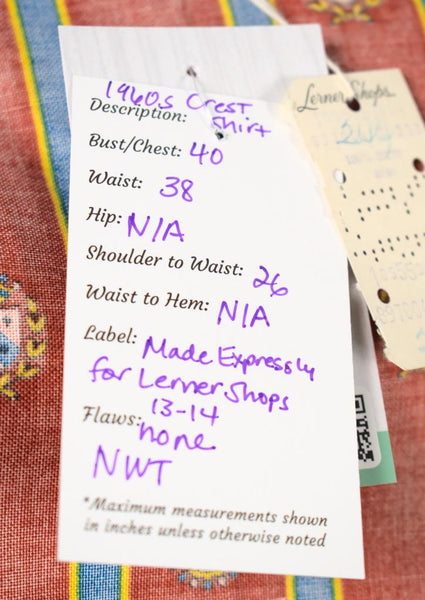 1960s Crest
Description: Shirt
Bust/Chest: 40
Waist: 38
Hip: N/A
Shoulder to Waist: 26
Waist to Hem: N/A
Label: Made Expressly
for Lerner Shops
13-14
Flaws: none
NWT
*Maximum measurements shown
in inches unless otherwise noted
Lerner Shops